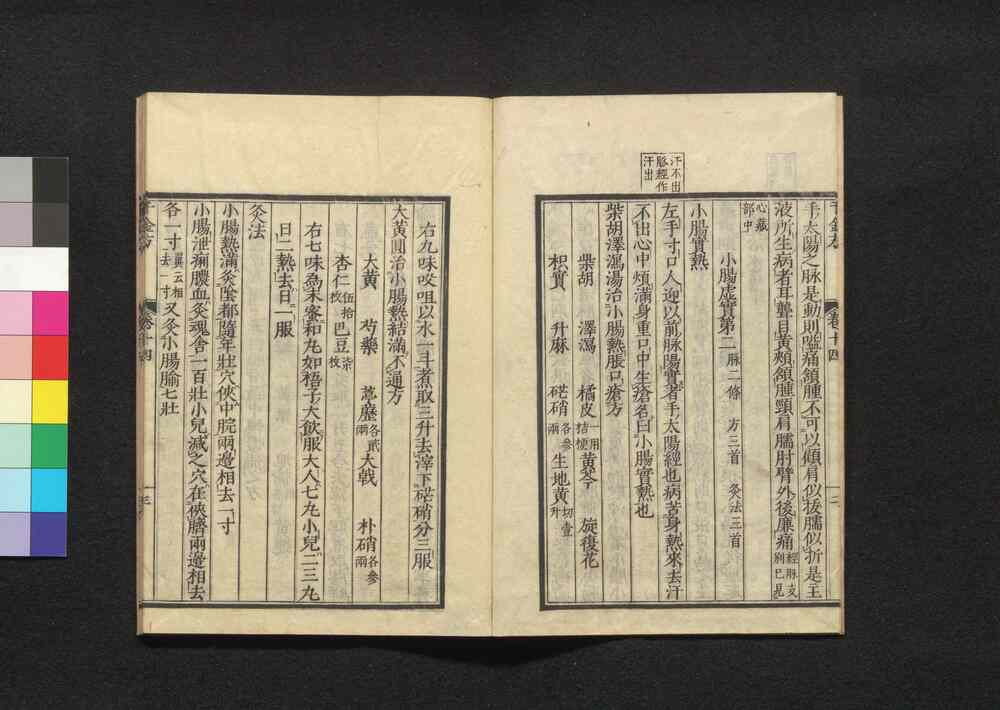 汗不出
脉經作
汗出
千金方
卷十四
二
手太陽之脉是動則嗌痛頷腫不可以傾肩似拔臑似折是主
液所生病者耳聾目黃頰頷腫頸肩臑肘臂外後廉痛經脉支別已見
心藏部中
小腸虛實第二脉二條 方三首 灸法三首
小腸實熱
左手寸口人迎以前脉陽實者手太陽經也病苦身熱來去汗
不出心中煩滿身重口中生瘡名曰小腸實熱也
柴胡澤瀉湯治小腸熱脹口瘡方
柴胡 澤瀉 橘皮一用桔梗 黃芩 旋復花
枳實 升麻 硭硝各參兩 生地黃切壹升
右九味㕮咀以水一斗煮取三升去滓下硭硝分三服
大黃圓治小腸熱結滿不通方
大黃 芍藥 葶藶各貳兩 大戟 朴硝各參兩
杏仁伍拾枚 巴豆柒枚
右七味為末蜜和丸如梧子大飲服大人七丸小兒二三丸
日二熱去日一服
灸法
小腸熱滿灸陰都隨年壯穴俠中脘兩邊相去一寸
小腸泄痢膿血灸魂舍一百壯小兒減之穴在俠臍兩邊相去
各一寸翼云相去一寸又灸小腸腧七壯
千金方
卷十四
三